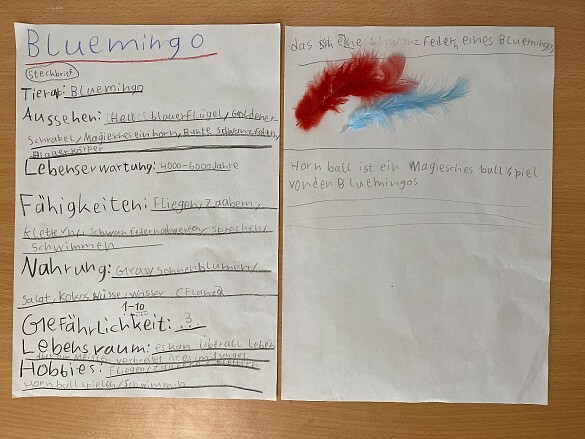 Bluemingo
Steckbrief
Tierart: Bluemingo
Aussehen: Hell blauerflügel/Goldener
Schnabel/Magiesches einhorn/Bunte Schwanzfedern/
Blauer körper
Lebenserwartung: 4000-6000 Jahre
Fähigkeiten: Fliegen/Zaubern/
klettern/Schwanzfedern abwerfen/sprechen/
Schwimmen
Nahrung: Gras/Sonnenblumen/
Salat/Kokos Nüsse/Wasser
1-10
Gefährlichkeit: 3
Lebensraum: es kan überall Leben
am Meisten verbreitet ist es im
Hobbies: Fliegen/Zaubern/Klettern
Hornball spielen/Schwimmen
das sind eine schwanzfedern eines Bluemingos
Hornball ist ein Magiesches ballspiel
von den Bluemingos